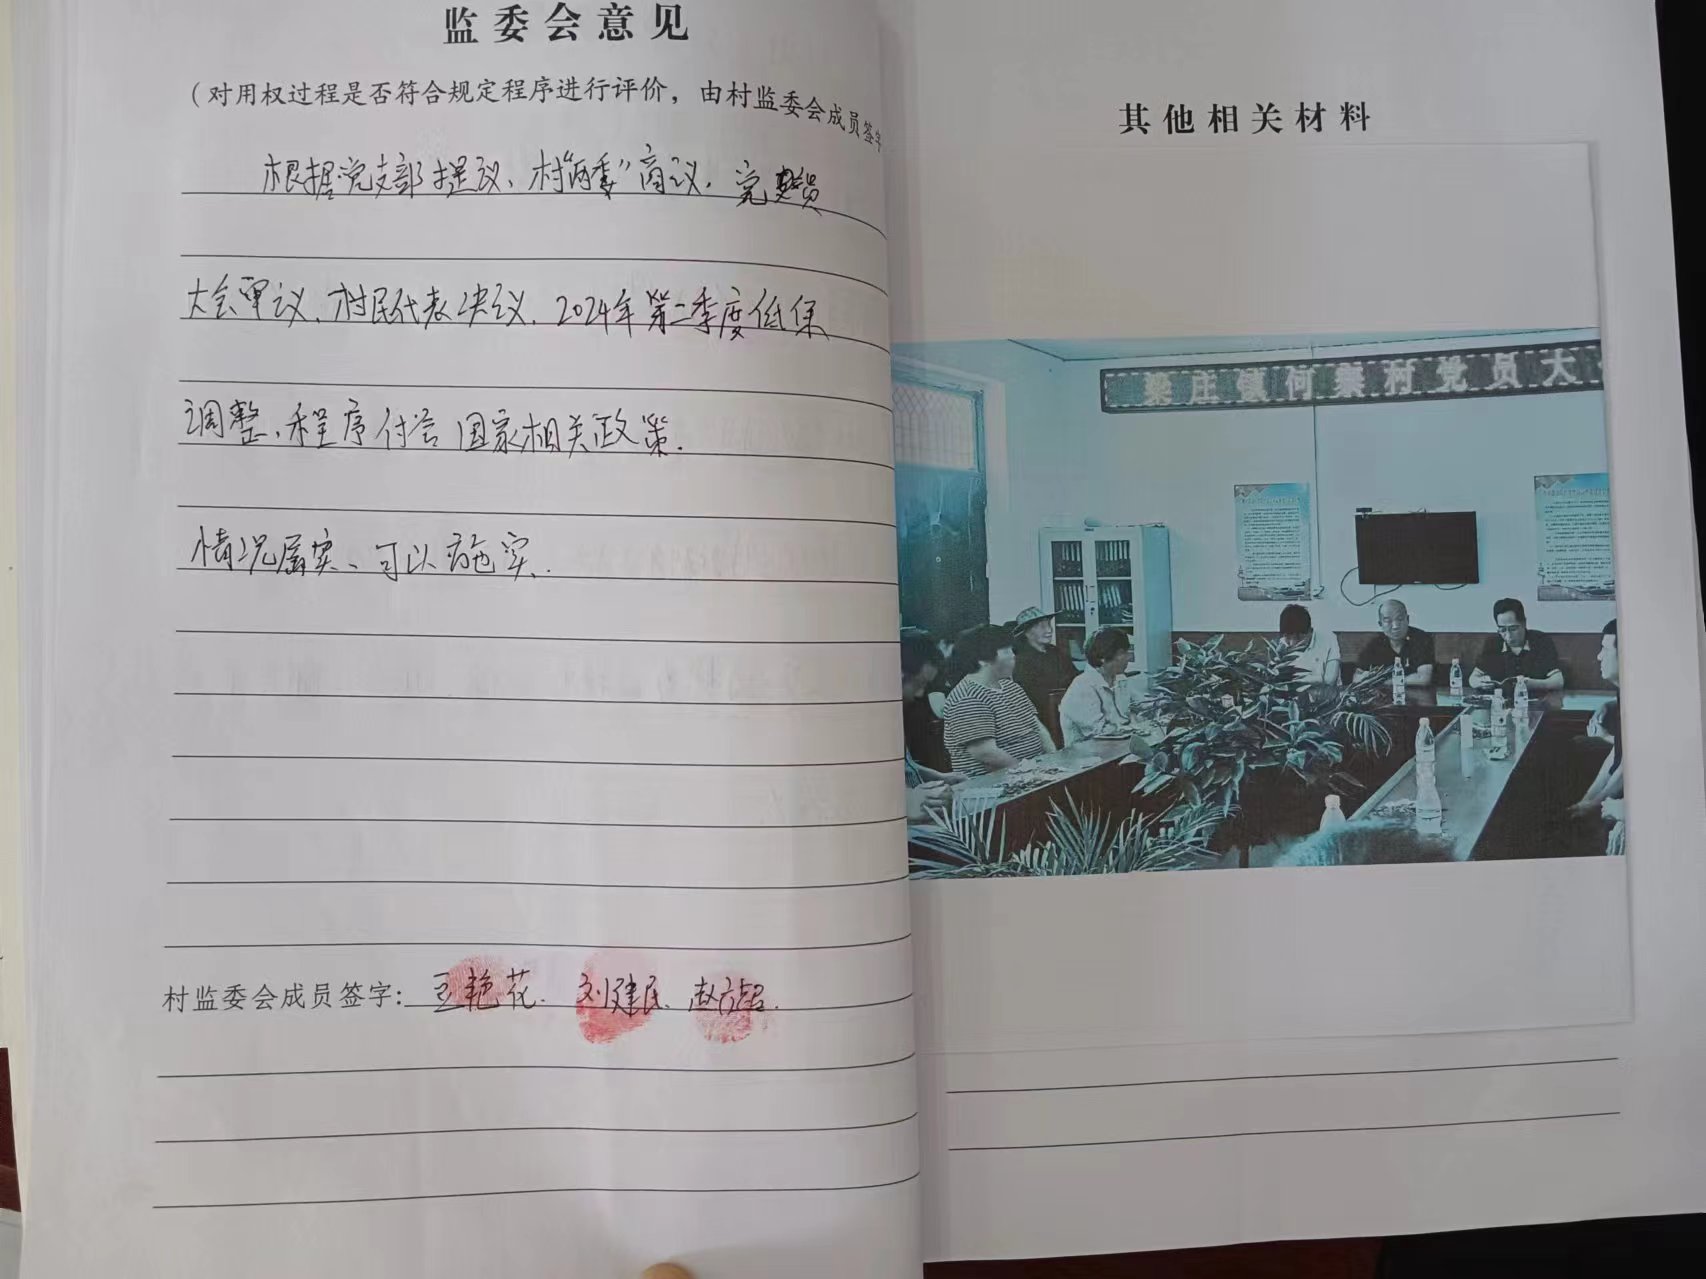 监委会意见
（对用权过程是否符合规定程序进行评价，由村监委会成员签字
根据党支部提议、村“两委”商议、党员
大会审议、村民代表决议、2024年第二季度低保
调整、程序付合国家相关政策.
情况属实、可以施实.
村监委会成员签字：王艳花. 刘建民. 赵
其他相关材料
梁庄镇何寨村党员大